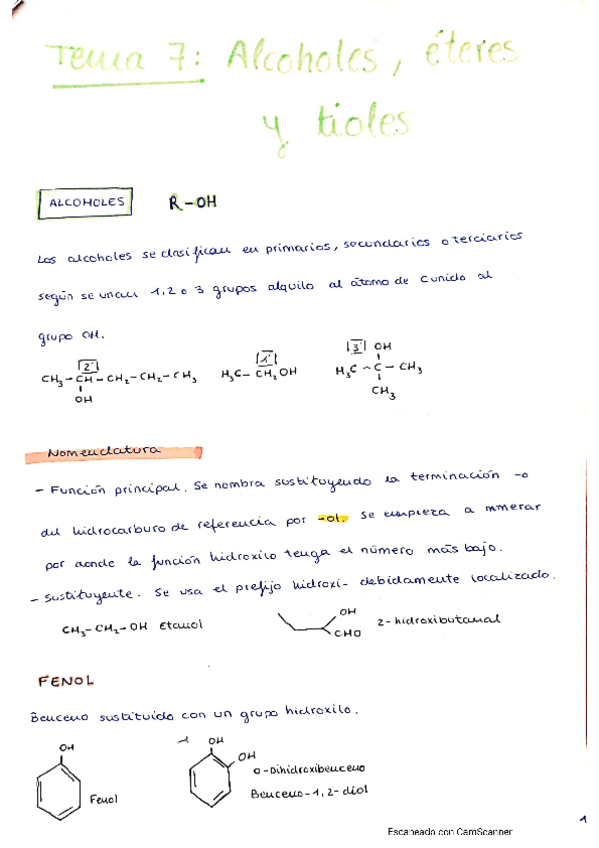 Tema 7: Alcoholes, éteres
y tioles
ALCOHOLES R-OH
Los alcoholes se clasifican en primarios, secundarios o terciarios
según se unan 1,2 o 3 grupos alquilo al átomo de C unido al
grupo OH.
2º 1º 3º OH
CH₃-CH-CH₂-CH₂-CH₃ H₃C-CH₂OH H₃C-C-CH₃
OH CH₃
Nomenclatura
- Función principal. Se nombra sustituyendo la terminación -o
del hidrocarburo de referencia por -ol. Se empieza a numerar
por donde la función hidroxilo tenga el número más bajo.
- Sustituyente. Se usa el prefijo hidroxi- debidamente localizado.
CH₃-CH₂-OH Etanol OH CHO 2-hidroxibutanal
FENOL
Benceno sustituido con un grupo hidroxilo.
OH OH OH
o-Dihidroxibenceno
Fenol Benceno-1,2-diol
1
Escaneado con CamScanner